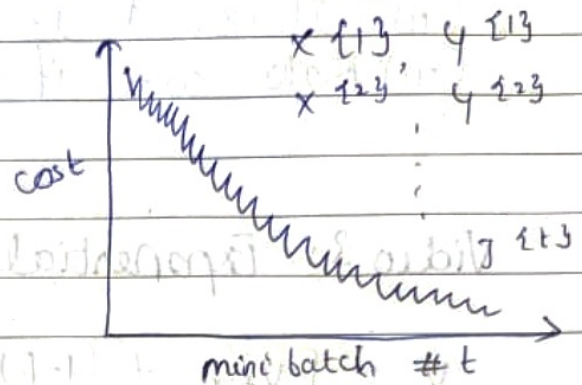 x {1}, y {1}
x {2}, y {2}
cost
J {t}
mini batch # t